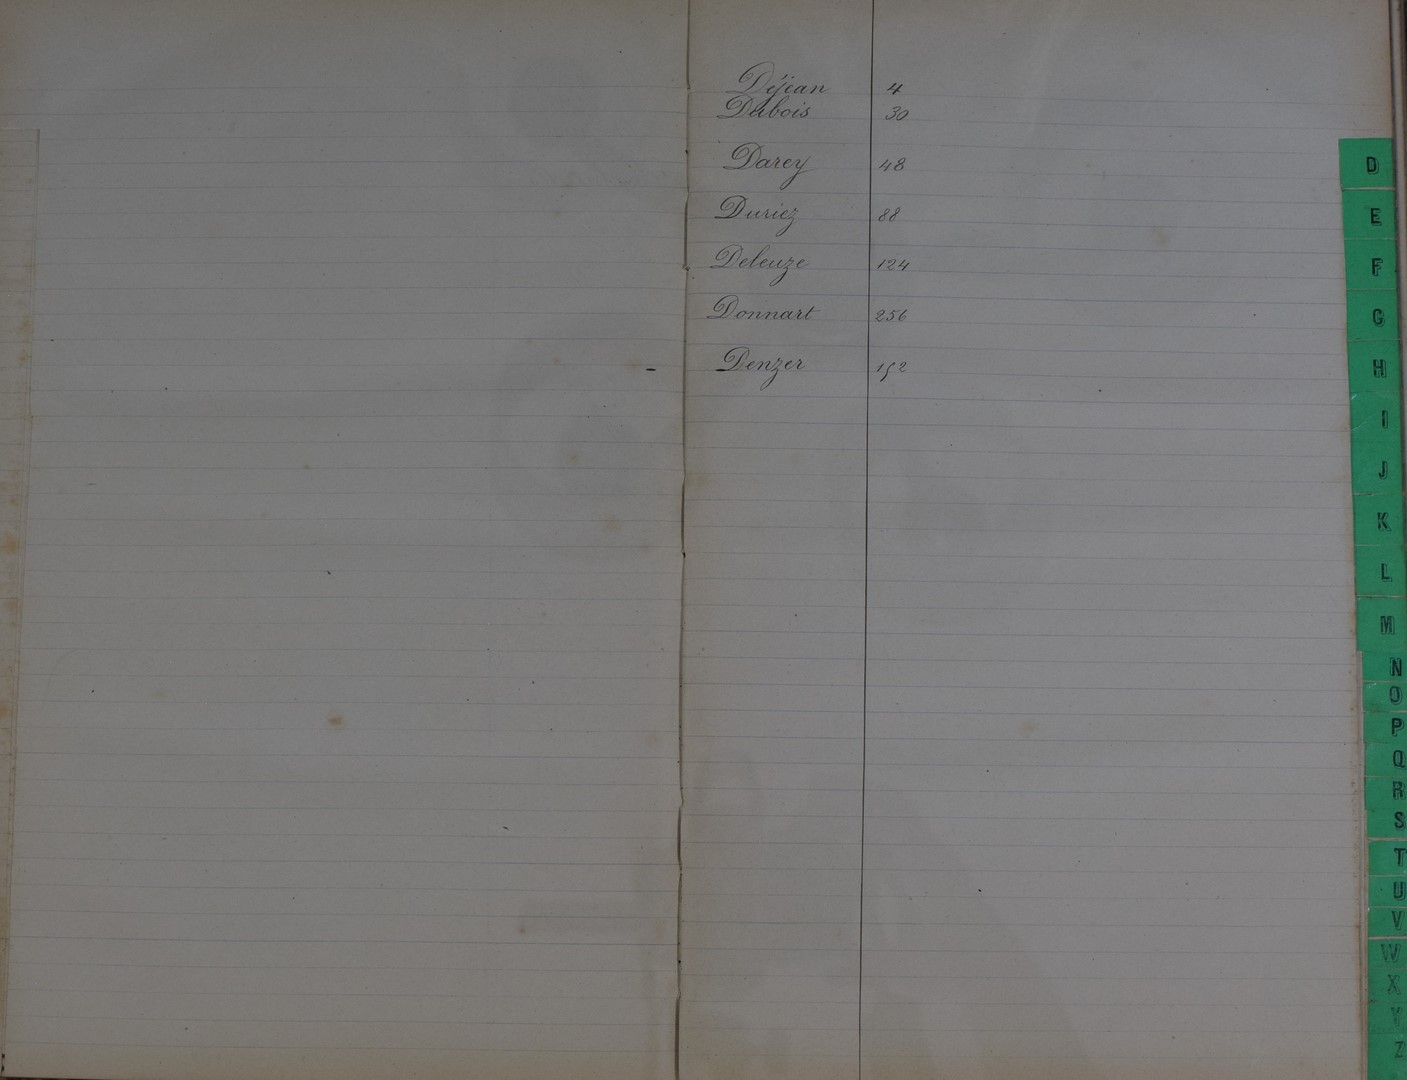 Déjean 4
Dubois 30
Darcy 48
Duriez 88
Deleuze 124
Donnart 256
Denzer 152
D
E
F
G
H
I
J
K
L
M
N
O
P
Q
R
S
T
U
V
W
X
Y
Z